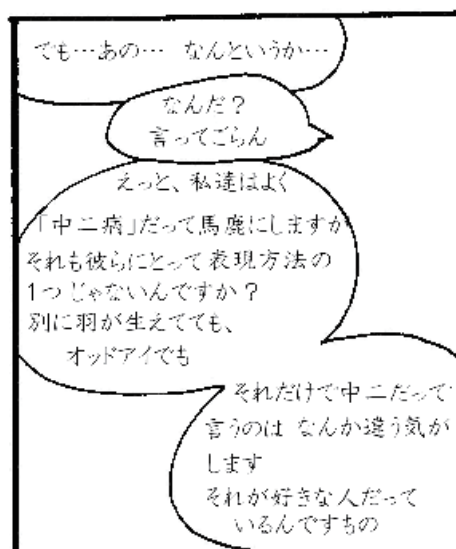 でも…あの… なんというか…
なんだ？
言ってごらん
えっと、私達はよく
「中二病」だって馬鹿にしますが
それも彼らにとって表現方法の
1つじゃないんですか？
別に羽が生えてても、
オッドアイでも
それだけで中二だって
言うのは なんか違う気が
します
それが好きな人だって
いるんですもの